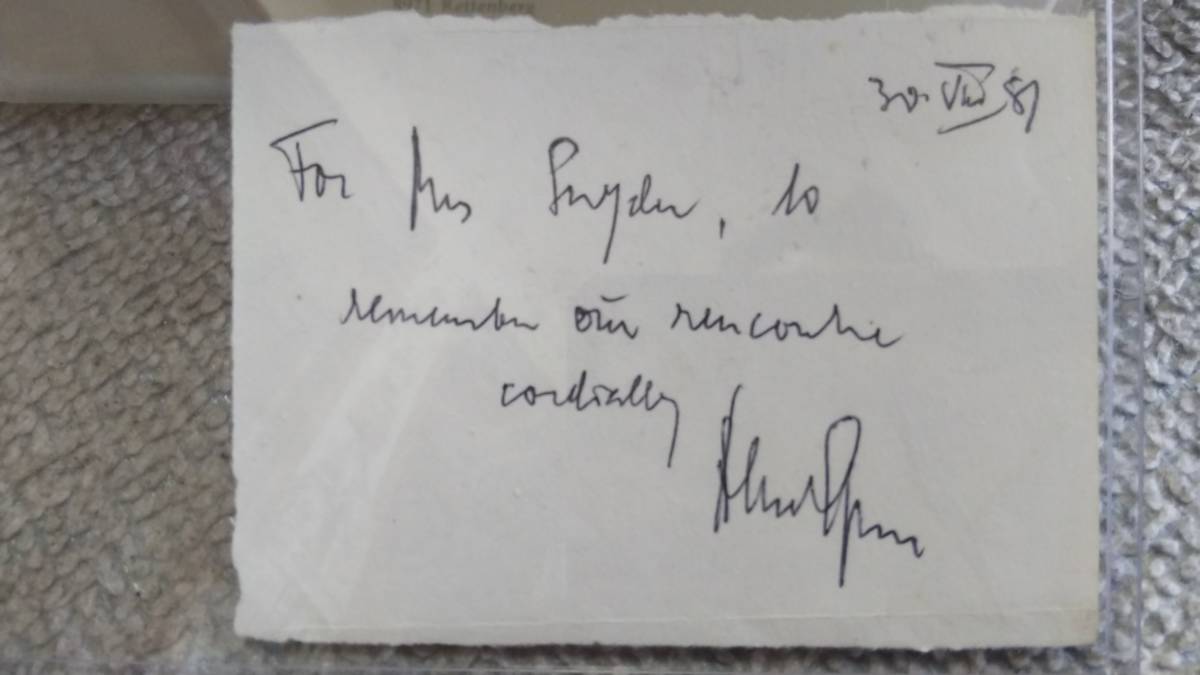 8971 Rettenberg
30. VIII 81
For Mrs Snyder, to
remember our rencontre
cordially Albert Speer